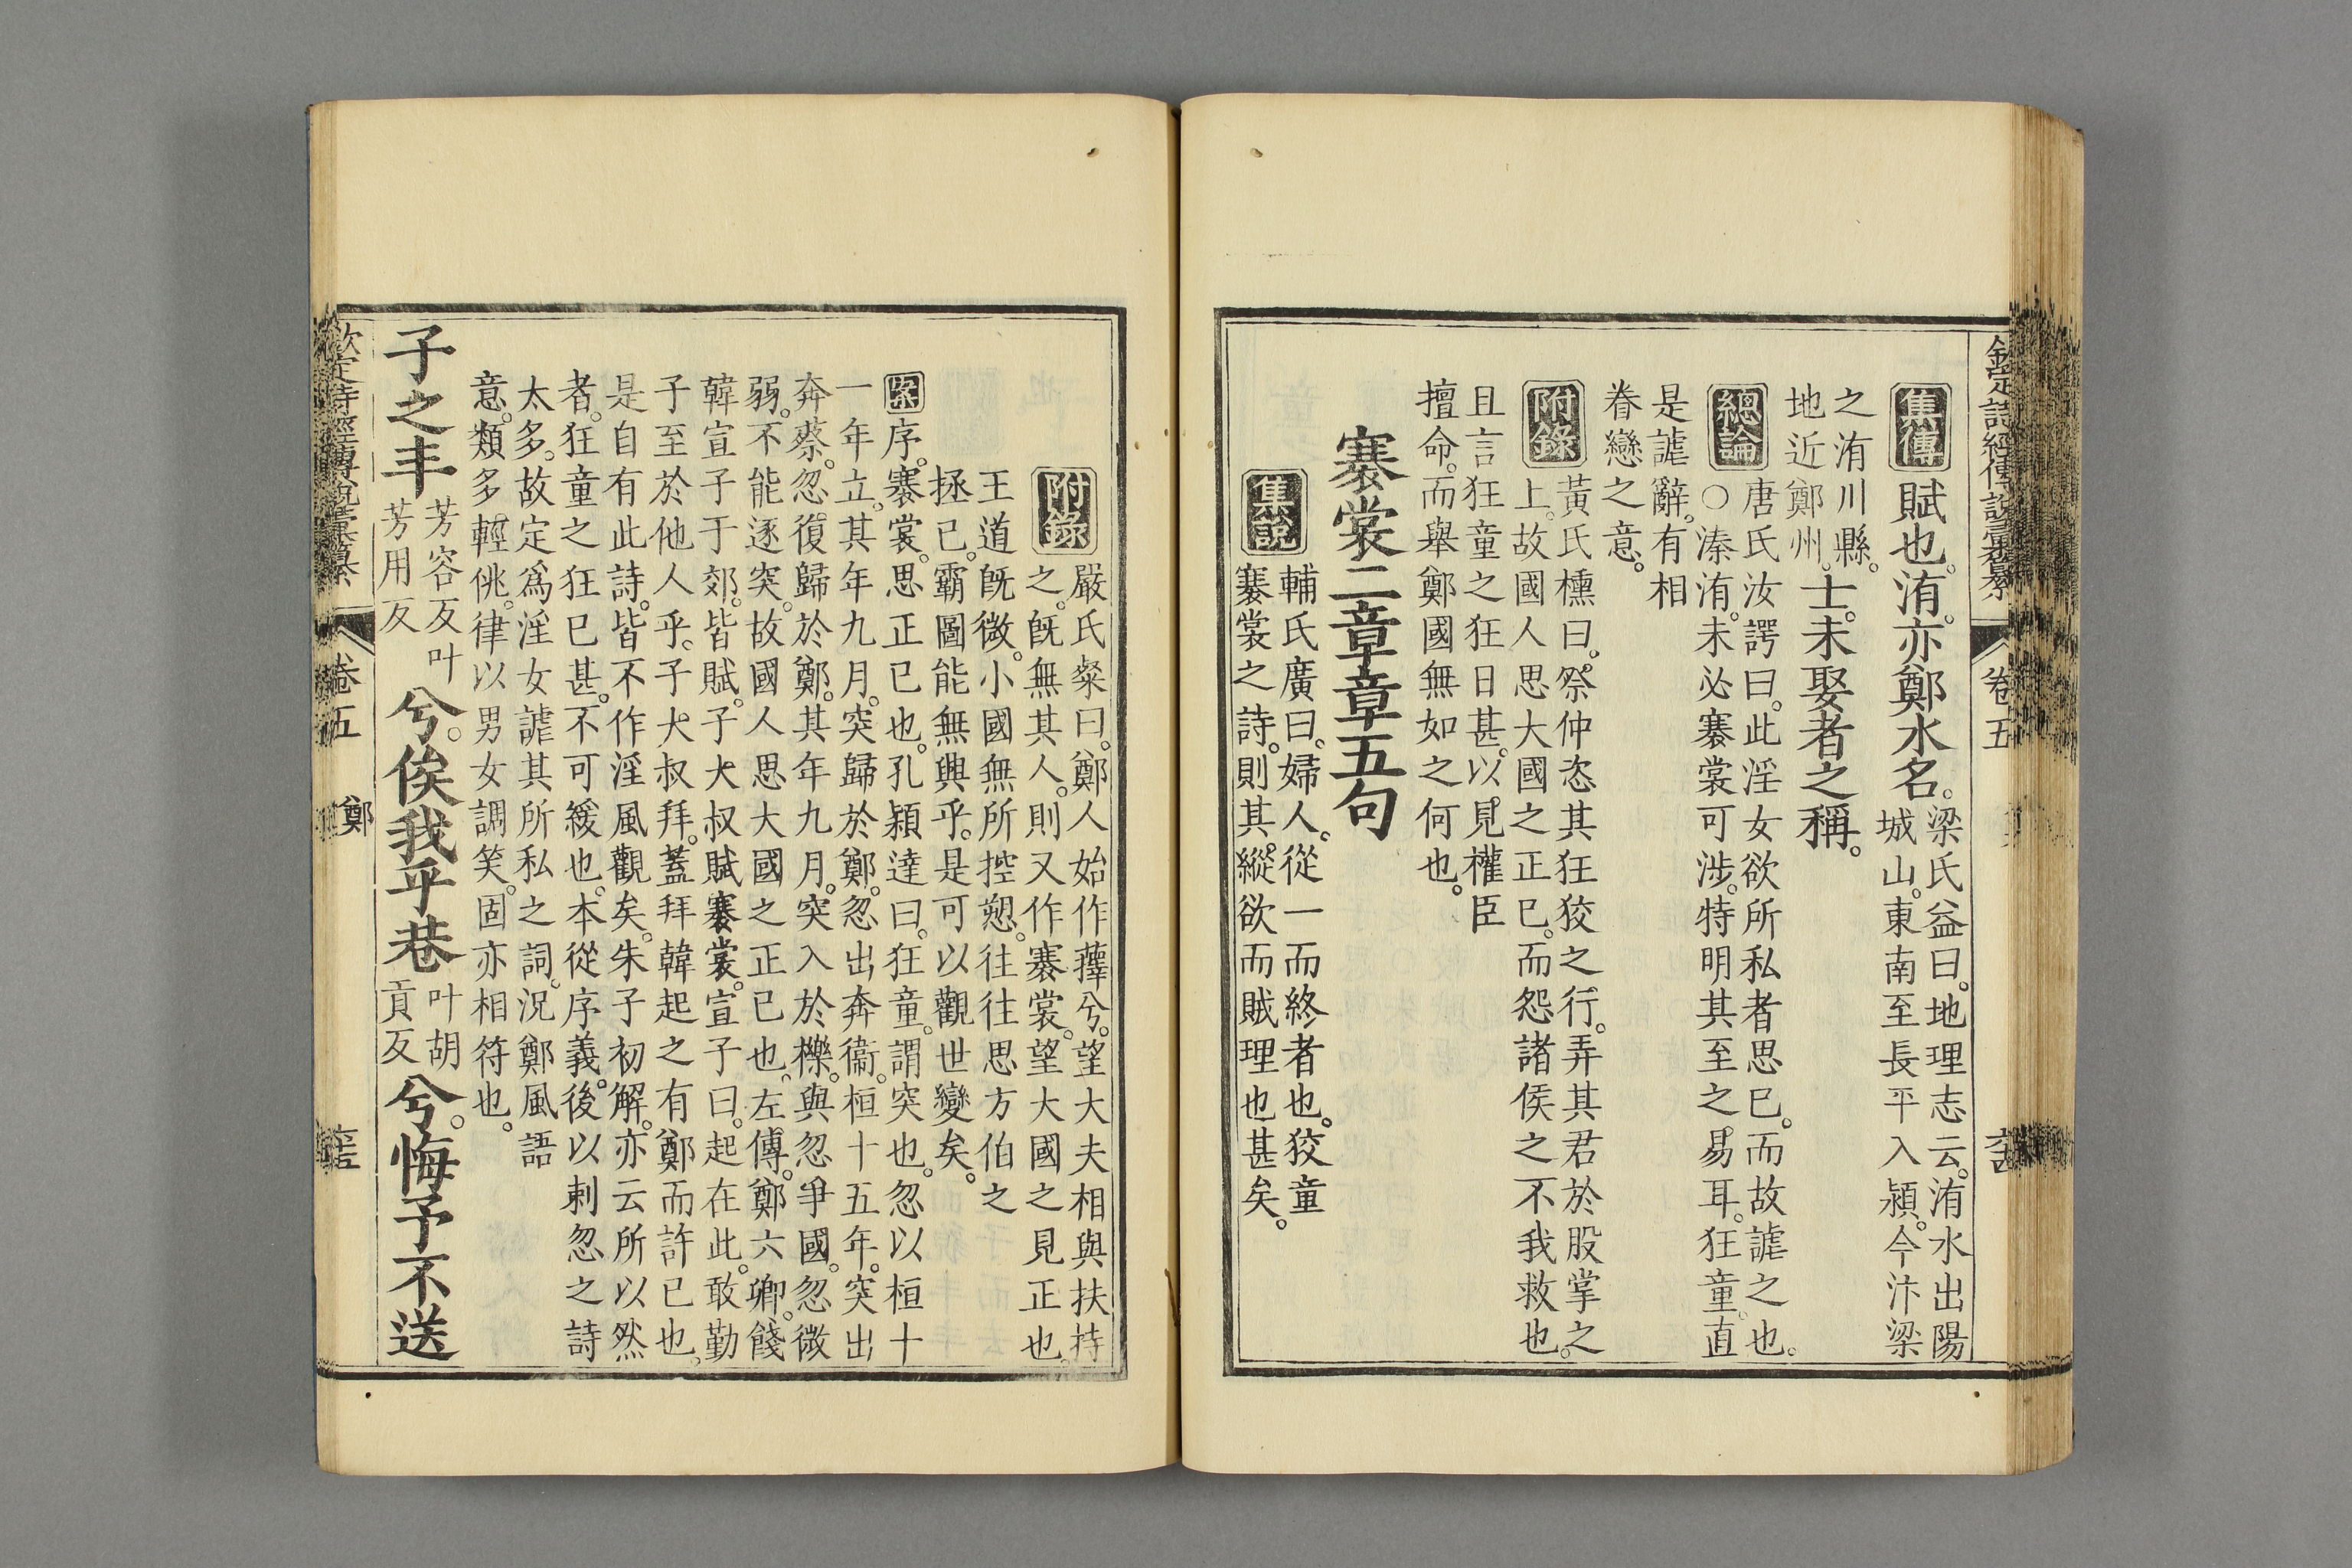 欽定詩經傳說彙纂
卷五
集傳 賦也。洧。亦鄭水名。
梁氏益曰。地理志云。洧水出陽
城山。東南至長平入潁。今汴梁
之洧川縣。
地近鄭州。
士。未娶者之稱。
總論 唐氏汝諤曰。此淫女欲所私者思已。而故謔之也。
○溱洧。未必褰裳可涉。特明其至之易耳。狂童。直
是謔辭。有相
眷戀之意。
附錄 黃氏櫄曰。祭仲恣其狂狡之行。弄其君於股掌之
上。故國人思大國之正已。而怨諸侯之不我救也。
且言狂童之狂日甚。以見權臣
擅命。而舉鄭國無如之何也。
褰裳二章章五句
集說 輔氏廣曰。婦人。從一而終者也。狡童
褰裳之詩。則其縱欲而賊理也甚矣。
附錄 嚴氏粲曰。鄭人始作蘀兮。望大夫相與扶持
之。旣無其人。則又作褰裳。望大國之見正也。
王道旣微。小國無所控愬。往往思方伯之
拯已。霸圖能無興乎。是可以觀世變矣。
案 序。褰裳。思正已也。孔穎達曰。狂童。謂突也。忽以桓十
一年立。其年九月。突歸於鄭。忽出奔衞。桓十五年。突出
奔蔡。忽復歸於鄭。其年九月。突入於櫟。與忽爭國。忽微
弱。不能逐突。故國人思大國之正已也。左傳。鄭六卿。餞
韓宣子于郊。皆賦。子大叔賦褰裳。宣子曰。起在此。敢勤
子至於他人乎。子大叔拜。蓋拜韓起之有鄭而許已也。
是自有此詩。皆不作淫風觀矣。朱子初解。亦云所以然
者。狂童之狂已甚。不可緩也。本從序義。後以刺忽之詩
太多。故定爲淫女謔其所私之詞。況鄭風語
意。類多輕佻。律以男女調笑。固亦相符也。
子之丰
芳容反叶
芳用反
兮。俟我乎巷
叶胡
貢反
兮。悔予不送
欽定詩經傳說彙纂
卷五
鄭